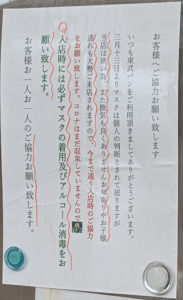 お客様へご協力お願い致します
いつも東武パンをご利用頂きましてありがとうございます。
三月十三日よりマスクは個人の判断とされて居りますが
当店は狭い為、また換気も良くありませんお年寄りやお子様
連れも大勢ご来店されますので、今まで通り入店時のご協力
をお願い致します。コロナはまだ収束していませんので
入店時には必ずマスクの着用及びアルコール消毒をお
願い致します。
お客様お一人お一人のご協力お願い致します。